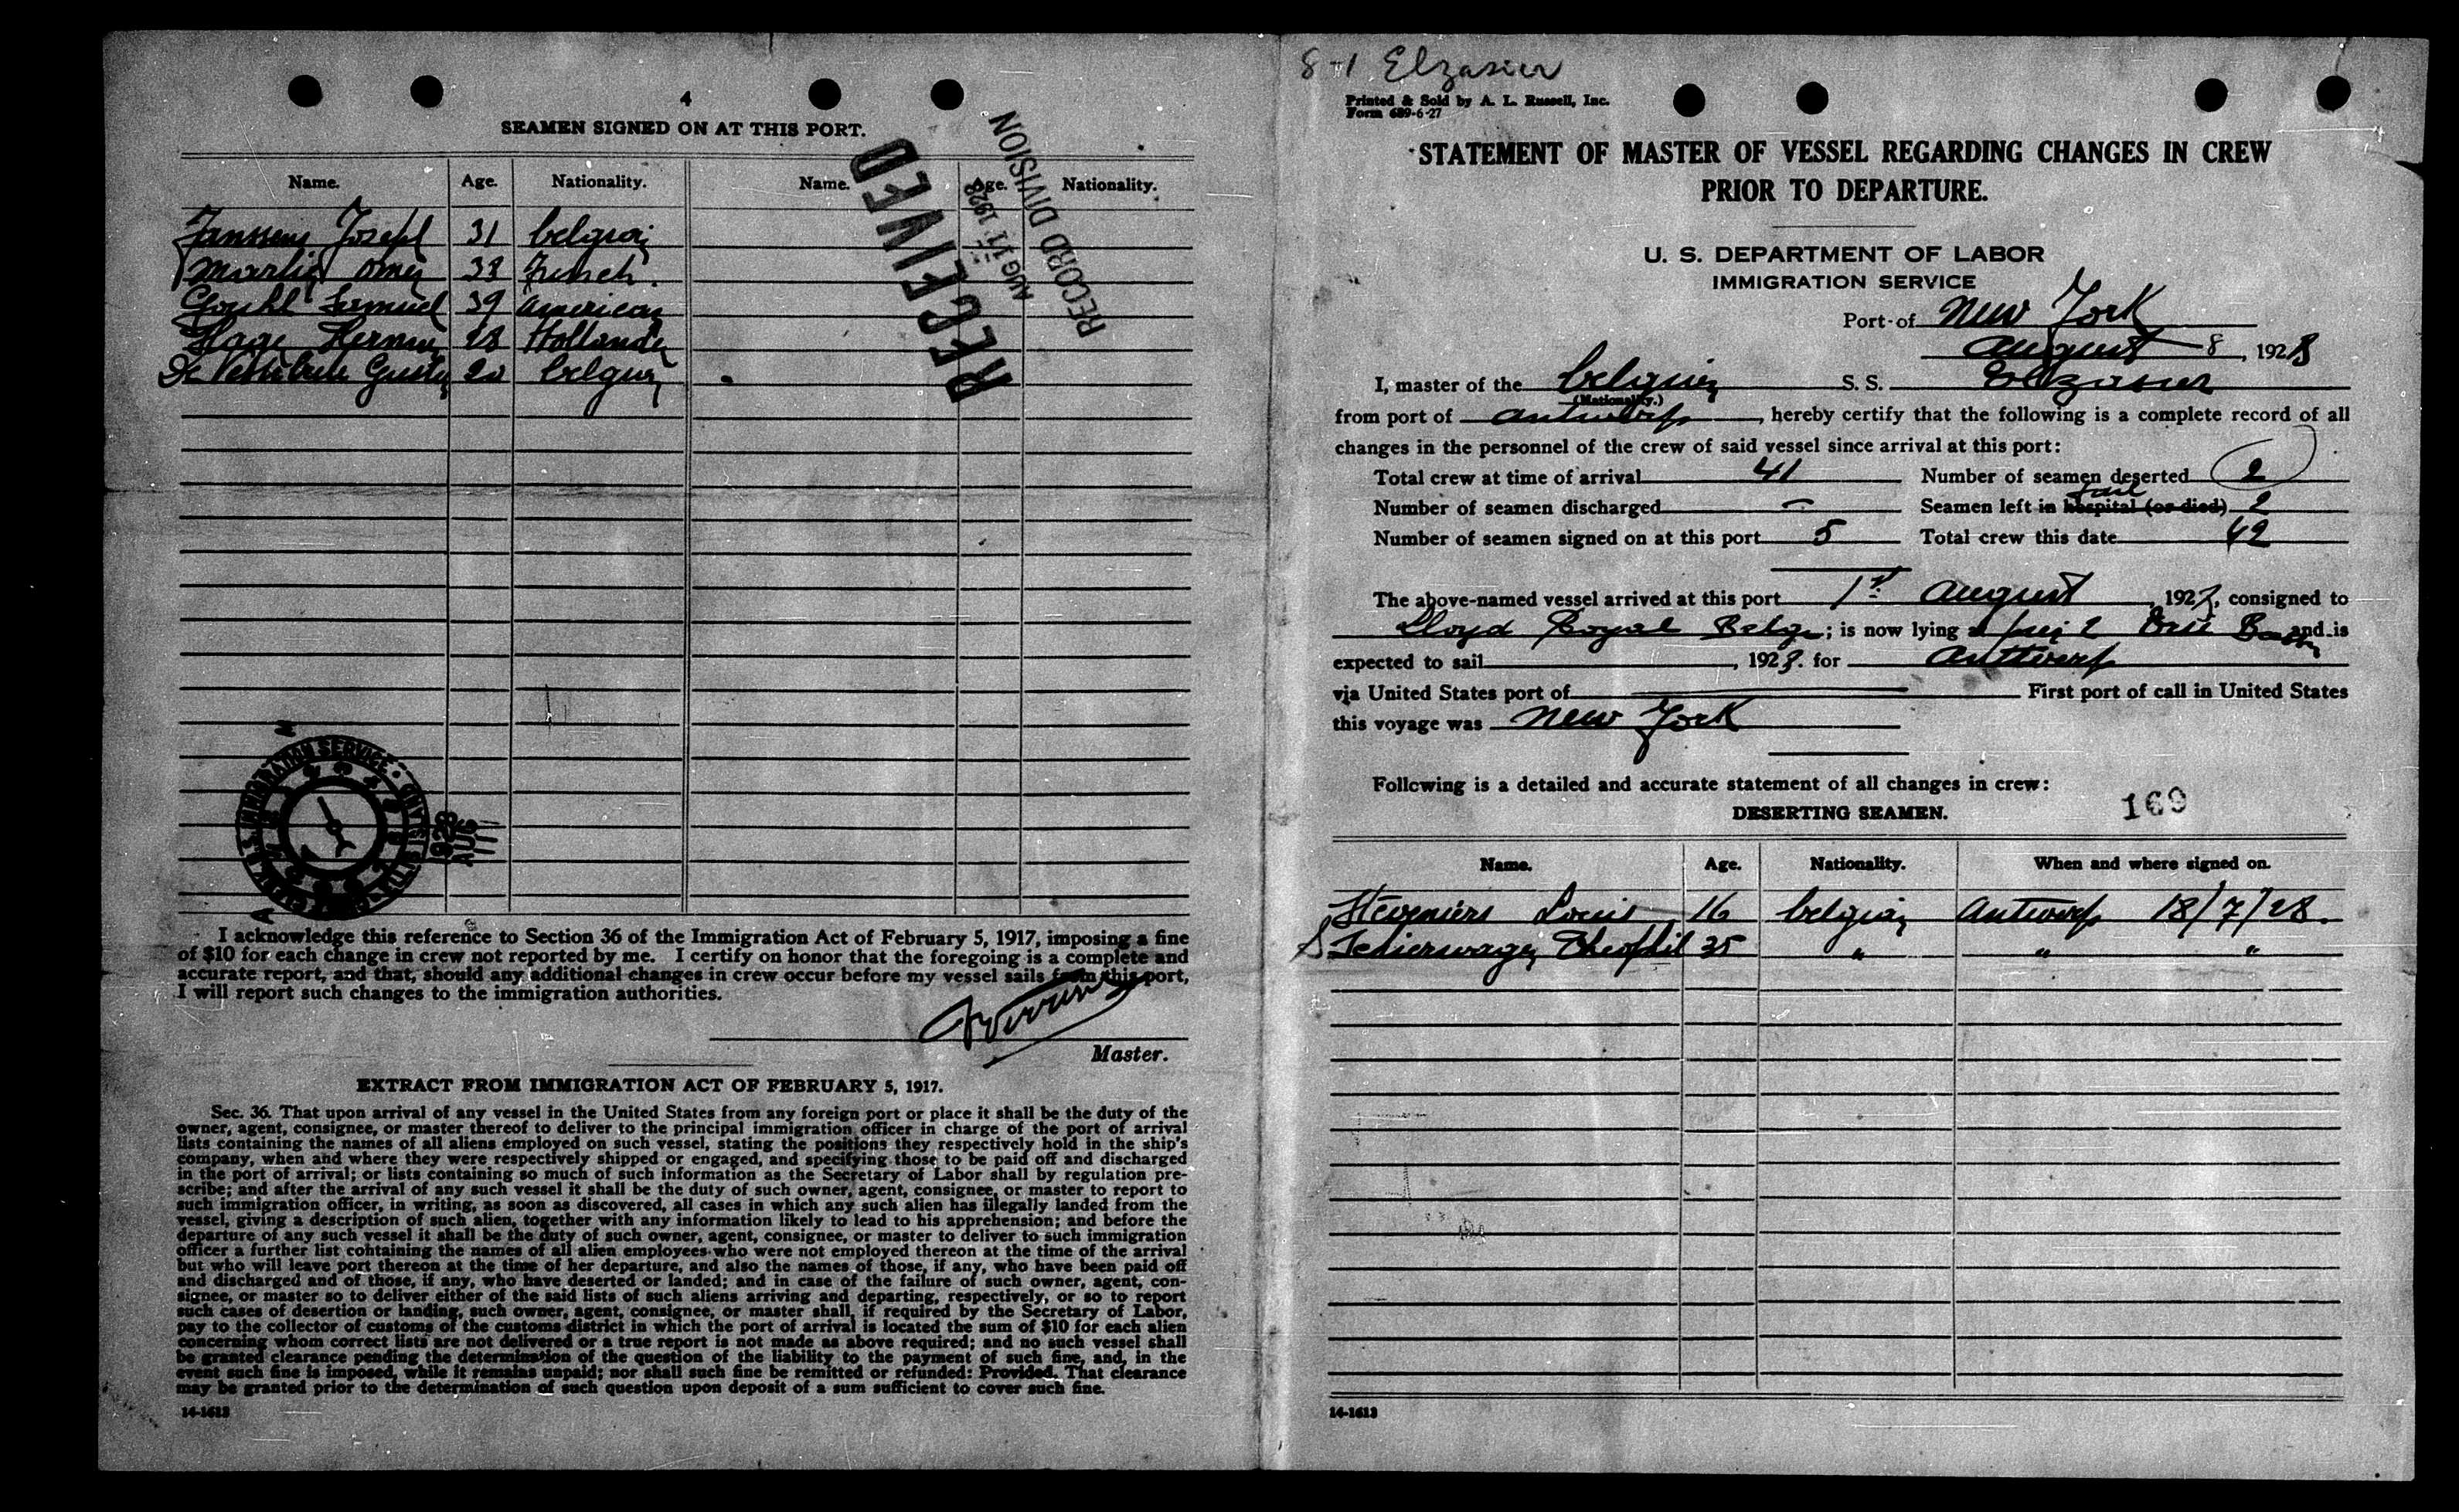 4
SEAMEN SIGNED ON AT THIS PORT.
Name. Age. Nationality. Name. Age. Nationality.
RECEIVED
AUG 11 1928
RECORD DIVISION
Janssens Joseph 31 belgian
Omer 38 French.
Samuel 39 american
Hage Herman 28 Hollander
De 20 belgian
U.S. IMMIGRATION SERVICE
1928
AUG
I acknowledge this reference to Section 36 of the Immigration Act of February 5, 1917, imposing a fine
of $10 for each change in crew not reported by me. I certify on honor that the foregoing is a complete and
accurate report, and that, should any additional changes in crew occur before my vessel sails from this port,
I will report such changes to the immigration authorities.
Master.
EXTRACT FROM IMMIGRATION ACT OF FEBRUARY 5, 1917.
Sec. 36. That upon arrival of any vessel in the United States from any foreign port or place it shall be the duty of the
owner, agent, consignee, or master thereof to deliver to the principal immigration officer in charge of the port of arrival
lists containing the names of all aliens employed on such vessel, stating the positions they respectively hold in the ship's
company, when and where they were respectively shipped or engaged, and specifying those to be paid off and discharged
in the port of arrival; or lists containing so much of such information as the Secretary of Labor shall by regulation pre-
scribe; and after the arrival of any such vessel it shall be the duty of such owner, agent, consignee, or master to report to
such immigration officer, in writing, as soon as discovered, all cases in which any such alien has illegally landed from the
vessel, giving a description of such alien, together with any information likely to lead to his apprehension; and before the
departure of any such vessel it shall be the duty of such owner, agent, consignee, or master to deliver to such immigration
officer a further list containing the names of all alien employees who were not employed thereon at the time of the arrival
but who will leave port thereon at the time of her departure, and also the names of those, if any, who have been paid off
and discharged and of those, if any, who have deserted or landed; and in case of the failure of such owner, agent, con-
signee, or master so to deliver either of the said lists of such aliens arriving and departing, respectively, or so to report
such cases of desertion or landing, such owner, agent, consignee, or master shall, if required by the Secretary of Labor,
pay to the collector of customs of the customs district in which the port of arrival is located the sum of $10 for each alien
concerning whom correct lists are not delivered or a true report is not made as above required; and no such vessel shall
be granted clearance pending the determination of the question of the liability to the payment of such fine, and, in the
event such fine is imposed, while it remains unpaid; nor shall such fine be remitted or refunded: Provided, That clearance
may be granted prior to the determination of such question upon deposit of a sum sufficient to cover such fine.
14-1613
8-1 Elzasier
Printed & Sold by A. L. Russell, Inc.
Form 689-6-27
STATEMENT OF MASTER OF VESSEL REGARDING CHANGES IN CREW
PRIOR TO DEPARTURE.
U. S. DEPARTMENT OF LABOR
IMMIGRATION SERVICE
Port of New York
August 8, 1928
I, master of the belgian S. S. Elzasier
(Nationality.)
from port of antwerp, hereby certify that the following is a complete record of all
changes in the personnel of the crew of said vessel since arrival at this port:
Total crew at time of arrival 41 Number of seamen deserted 2
Number of seamen discharged - Seamen left in hospital (or died) 2
Number of seamen signed on at this port 5 Total crew this date 42
The above-named vessel arrived at this port 1st August 192, consigned to
Lloyd Royal Belge; is now lying at pier 2 Erie Basin and is
expected to sail , 1928. for Antwerp
via United States port of First port of call in United States
this voyage was New York
Following is a detailed and accurate statement of all changes in crew:
169
DESERTING SEAMEN.
Name. Age. Nationality. When and where signed on.
Steveniers Louis 16 belgian Antwerp 18/7/28.
Theophil 35 " " "
14-1613